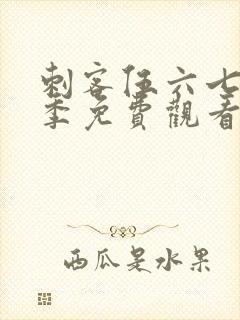 刺客伍六七
季免費觀看
西瓜是水果